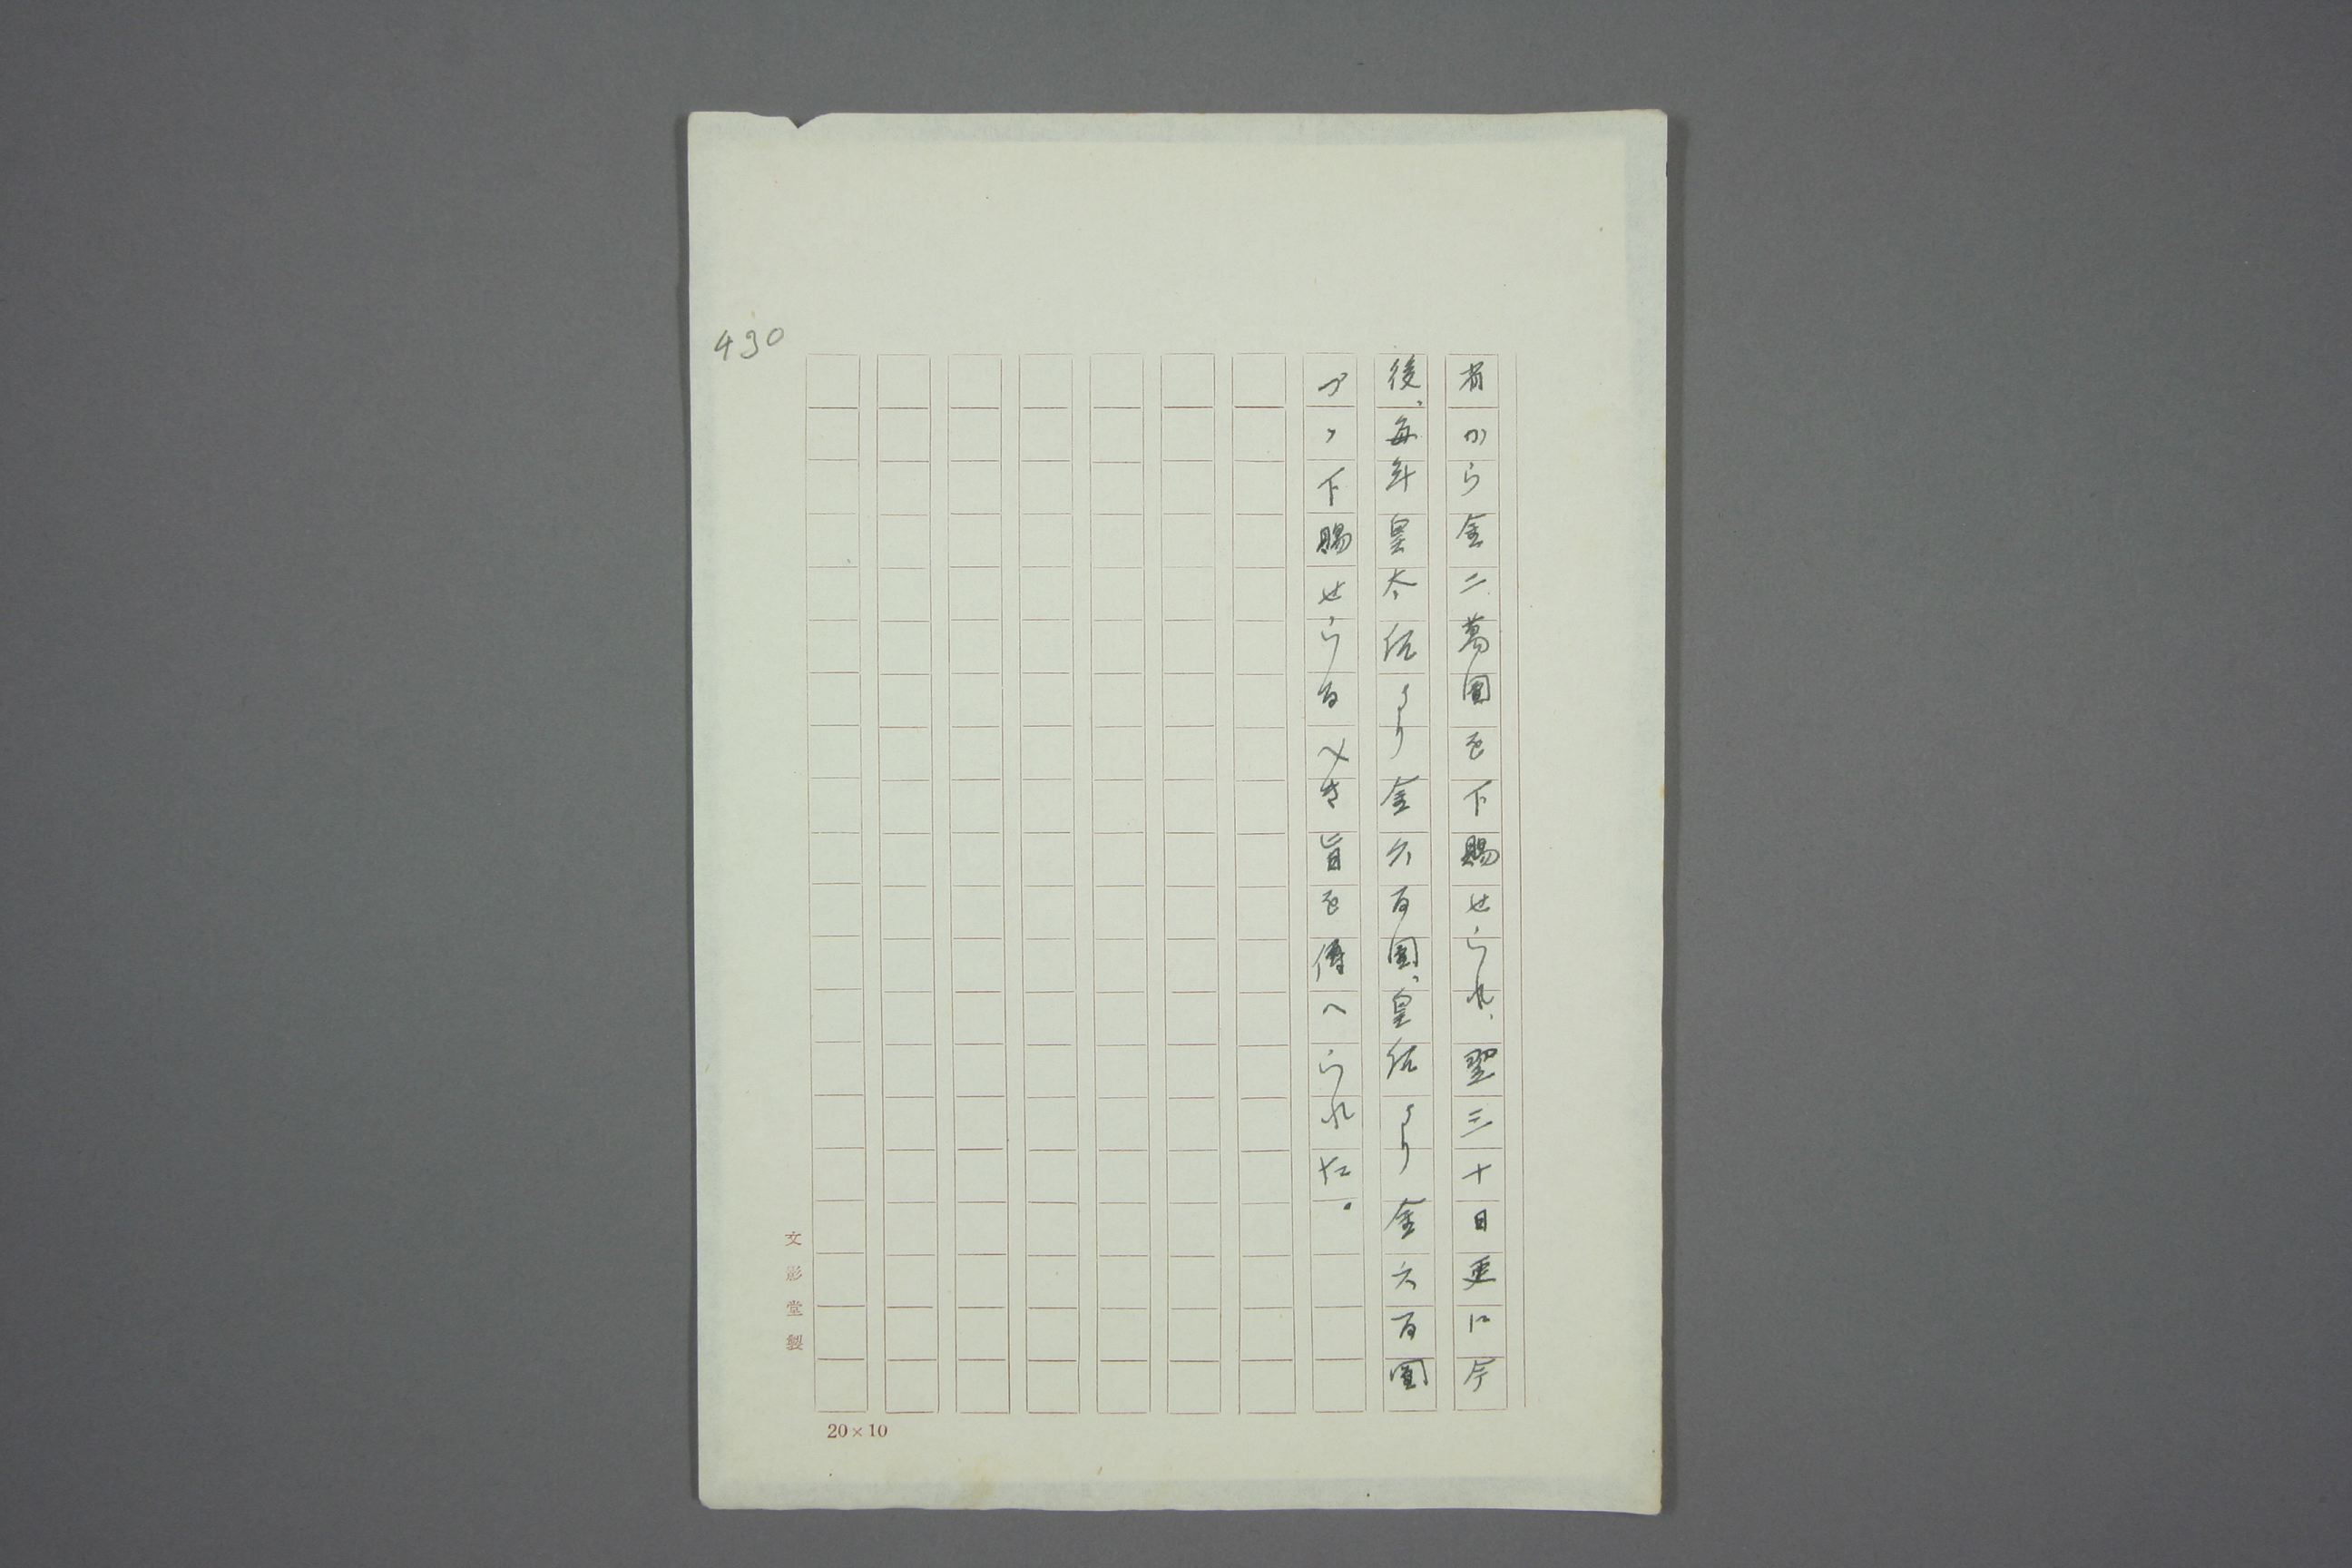 省から金二萬圓を下賜せられ、翌三十日更に今
後、毎年皇太后より金六百圓、皇后より金六百圓
づゝ下賜せらるべき旨を傳へられた。
430
文影堂製
20×10